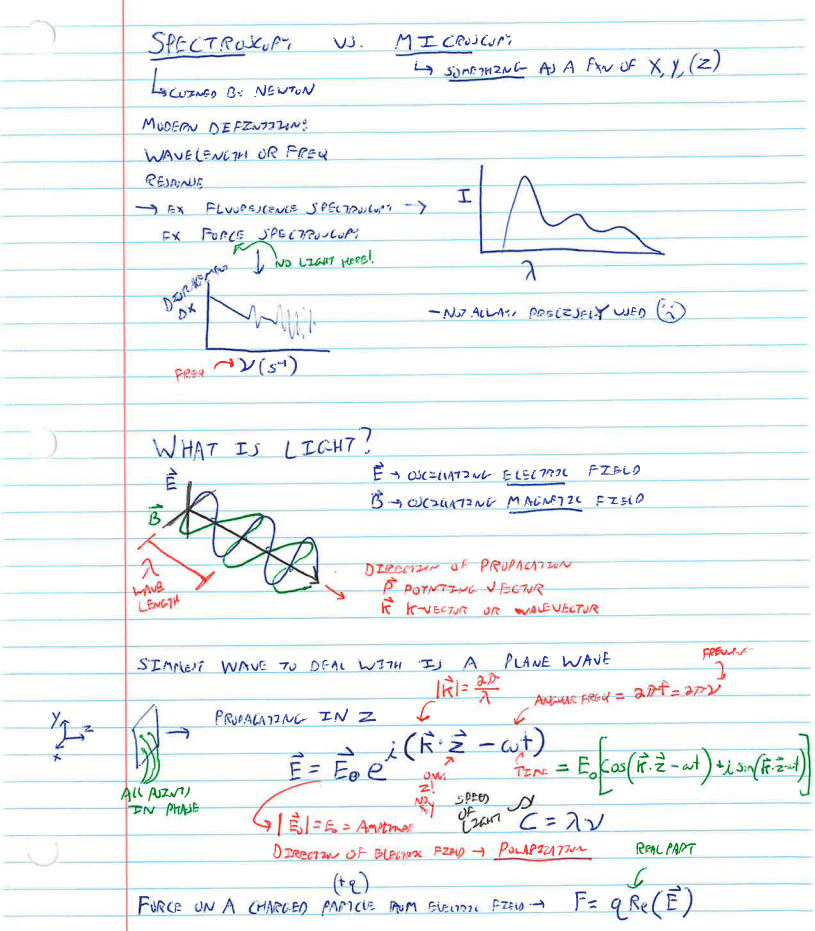 SPECTROSCOPY VS. MICROSCOPY
↳ SOMETHING AS A FXN OF X, Y, (Z)
↳ COINED BY NEWTON
MODERN DEFINITION:
WAVELENGTH OR FREQ
RESPONSE
→ EX FLUORESCENCE SPECTROSCOPY →
EX FORCE SPECTROSCOPY
NO LIGHT HERE!
I
λ
DISPLACEMENT
ΔX
FREQ → ν (s⁻¹)
- NOT ALWAYS PRECISELY USED
WHAT IS LIGHT?
E⃗ → OSCILLATING ELECTRIC FIELD
B⃗ → OSCILLATING MAGNETIC FIELD
E⃗
B⃗
λ
WAVE
LENGTH
DIRECTION OF PROPAGATION
P⃗ POYNTING VECTOR
K⃗ K-VECTOR OR WAVEVECTOR
SIMPLEST WAVE TO DEAL WITH IS A PLANE WAVE
|K⃗| = 2π/λ
ANGULAR FREQ = 2πf = 2πν
Y
Z
X
→ PROPAGATING IN Z
ALL POINTS
IN PHASE
E⃗ = E⃗₀ e^i(K⃗·Z⃗ - ωt)
ONLY
Z!
NO
XY
TIME
= E₀[cos(K⃗·Z⃗ - ωt) + i sin(K⃗·Z⃗ - ωt)]
SPEED
OF
LIGHT
C = λν
|E⃗₀| = E₀ = AMPLITUDE
DIRECTION OF ELECTRIC FIELD → POLARIZATION
REAL PART
(+q)
FORCE ON A CHARGED PARTICLE FROM ELECTRIC FIELD → F = q Re(E⃗)